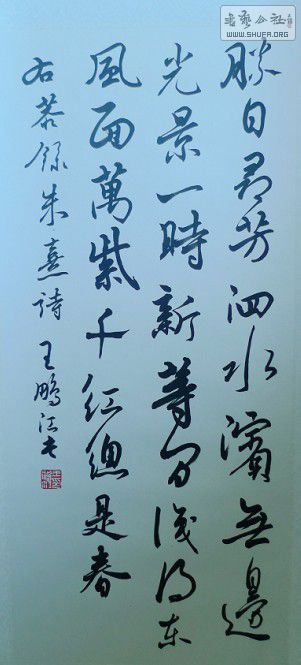 書藝公社
WWW.SHUFA.ORG
勝日尋芳泗水濱無邊
光景一時新等閒識得東
風面萬紫千紅總是春
右恭錄朱熹詩 王鵬江书